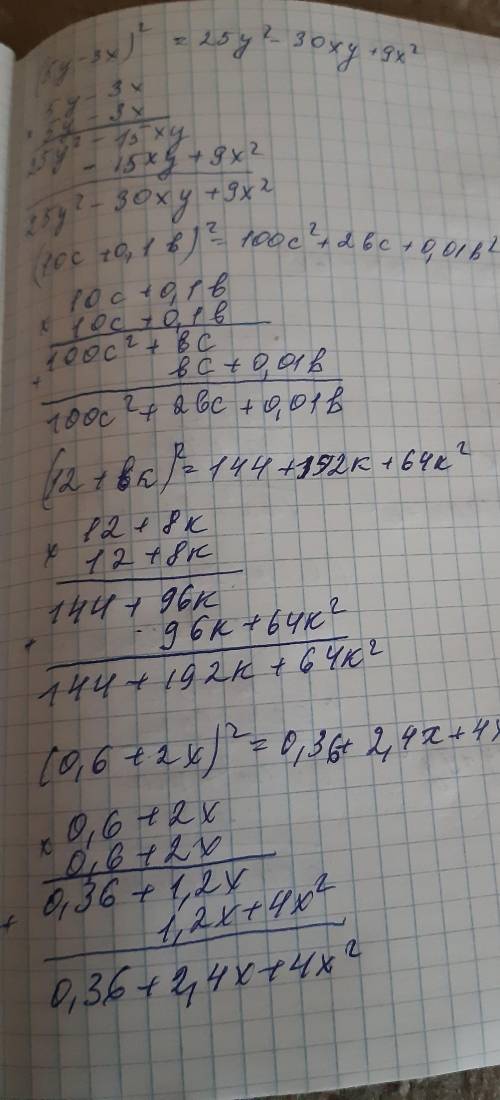 (5y - 3x)² = 25y² - 30xy + 9x²
× 5y - 3x
5y - 3x
25y² - 15xy
- 15xy + 9x²
25y² - 30xy + 9x²
(10c + 0,1в)² = 100c² + 2вc + 0,01в²
10c + 0,1в
× 10c + 0,1в
100c² + вc
+ вc + 0,01в
100c² + 2вc + 0,01в
(12 + 8к)² = 144 + 192к + 64к²
12 + 8к
× 12 + 8к
144 + 96к
+ 96к + 64к²
144 + 192к + 64к²
(0,6 + 2x)² = 0,36 + 2,4x + 4x
× 0,6 + 2x
0,6 + 2x
0,36 + 1,2x
+ 1,2x + 4x²
0,36 + 2,4x + 4x²